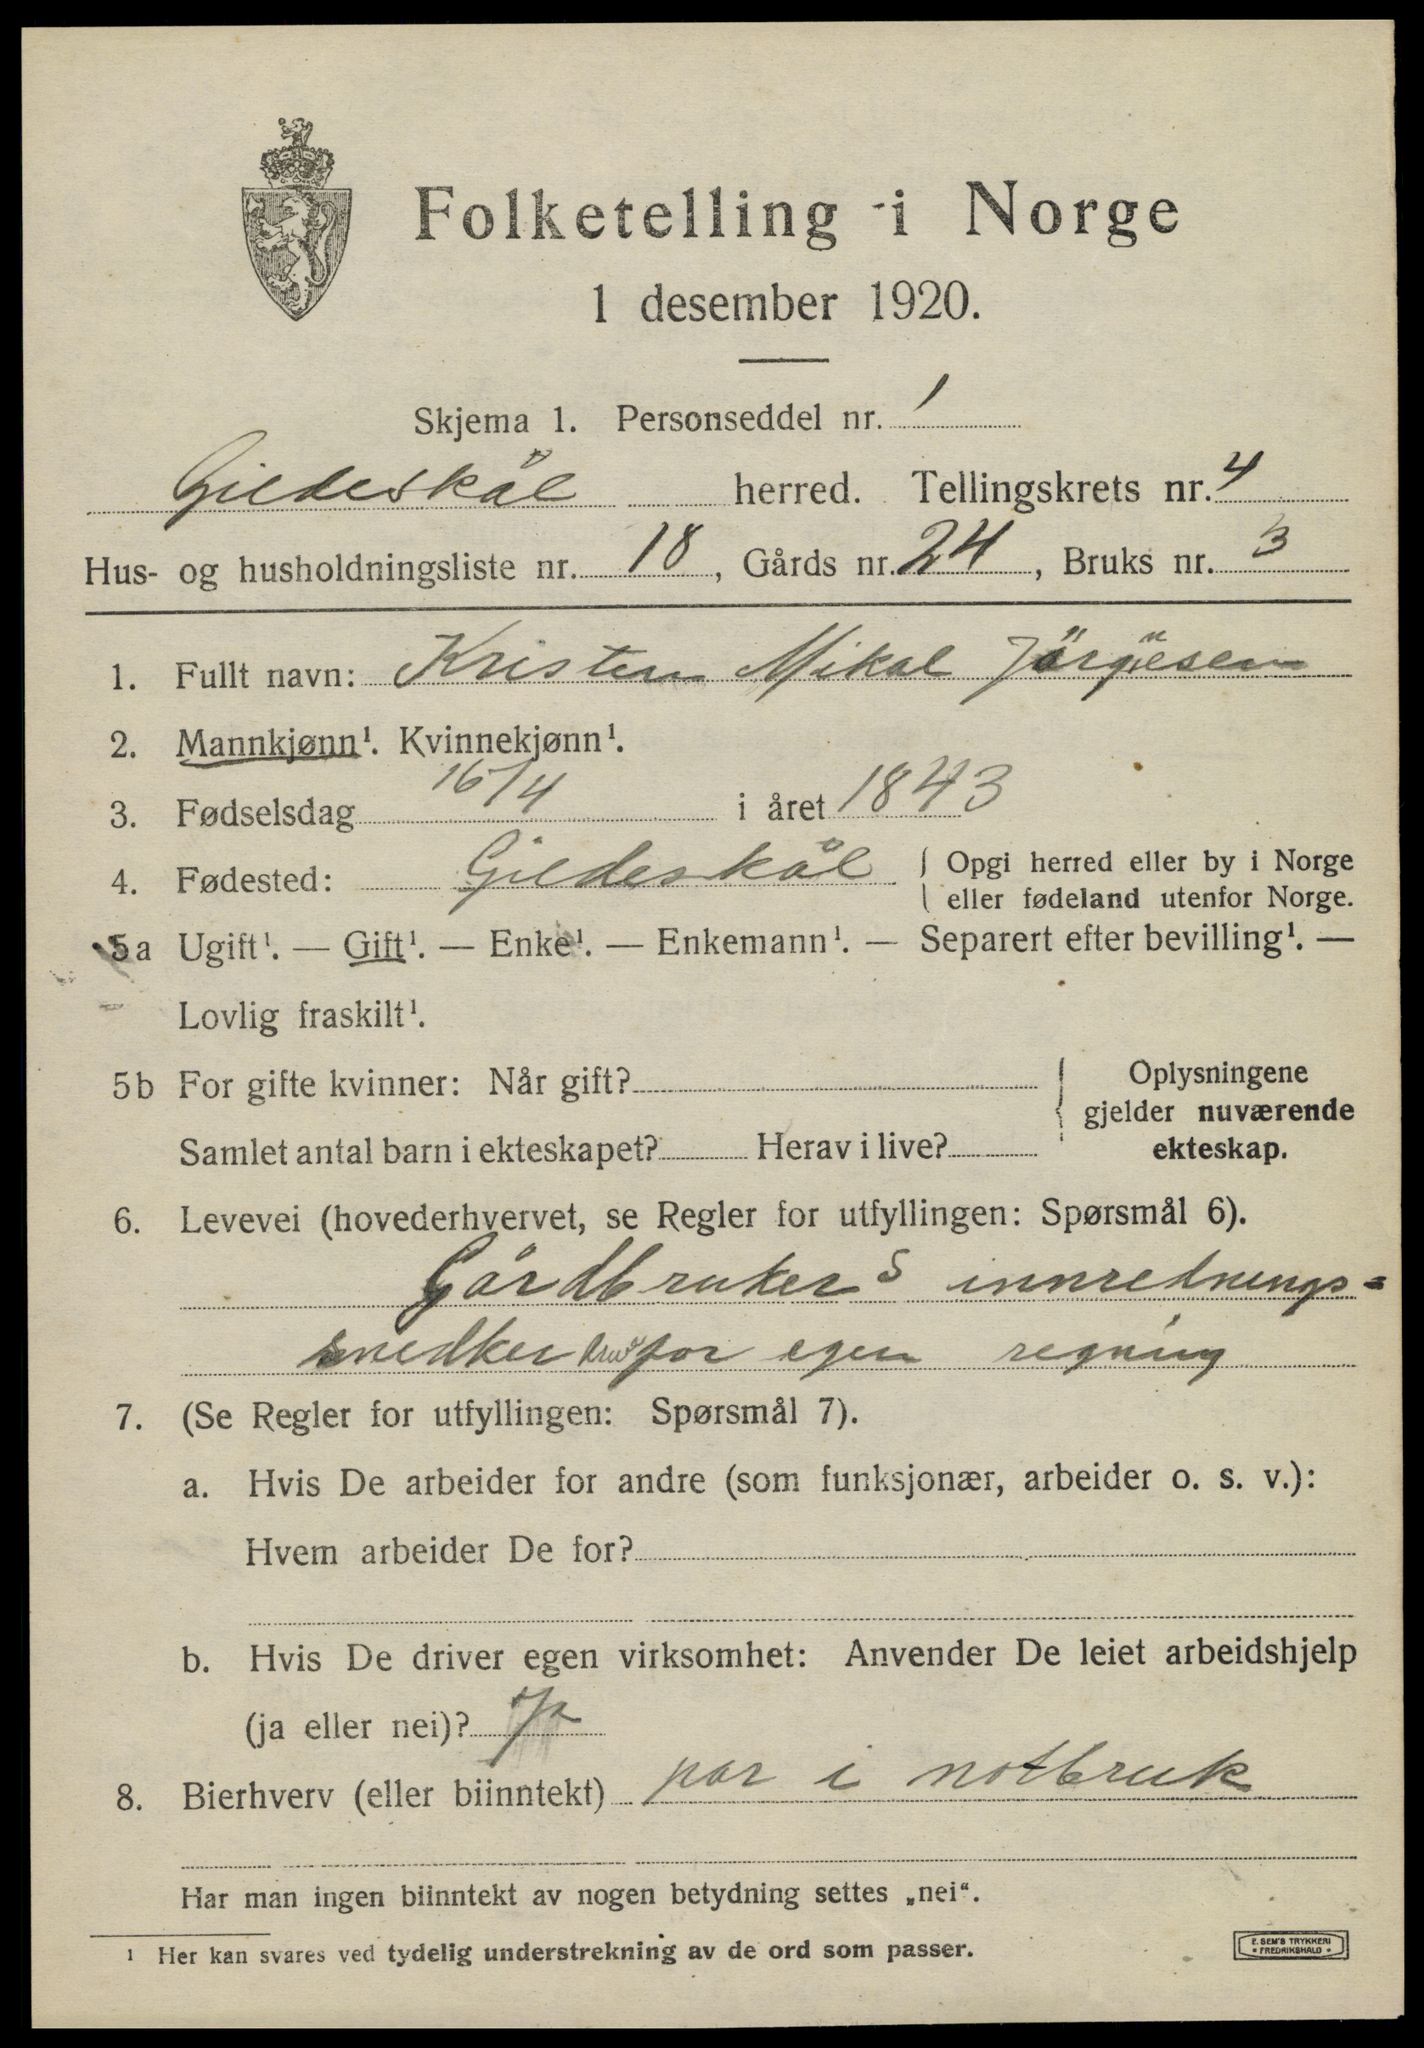 Folketelling i Norge
1 desember 1920.
Skjema 1. Personseddel nr. 1
Gildeskål herred. Tellingskrets nr. 4
Hus- og husholdningsliste nr. 18, Gårds nr. 24, Bruks nr. 3
1. Fullt navn: Kristen Mikal
2. Mannkjønn¹. Kvinnekjønn¹.
3. Fødselsdag 16/4 i året 1843
4. Fødested: Gildeskål { Opgi herred eller by i Norge
eller fødeland utenfor Norge.
5a Ugift¹. — Gift¹. — Enke¹. — Enkemann¹. — Separert efter bevilling¹. —
Lovlig fraskilt¹.
5b For gifte kvinner: Når gift?
Samlet antal barn i ekteskapet? Herav i live?
{ Oplysningene
gjelder nuværende
ekteskap.
6. Levevei (hovederhvervet, se Regler for utfyllingen: Spørsmål 6).
Gårdbruker S innrednings=
snedker for egen regning
7. (Se Regler for utfyllingen: Spørsmål 7).
a. Hvis De arbeider for andre (som funksjonær, arbeider o. s. v.):
Hvem arbeider De for?
b. Hvis De driver egen virksomhet: Anvender De leiet arbeidshjelp
(ja eller nei)? Ja
8. Bierhverv (eller biinntekt) par i notbruk
Har man ingen biinntekt av nogen betydning settes „nei“.
¹ Her kan svares ved tydelig understrekning av de ord som passer.
E. SEM'S TRYKKERI
* FREDRIKSHALD *